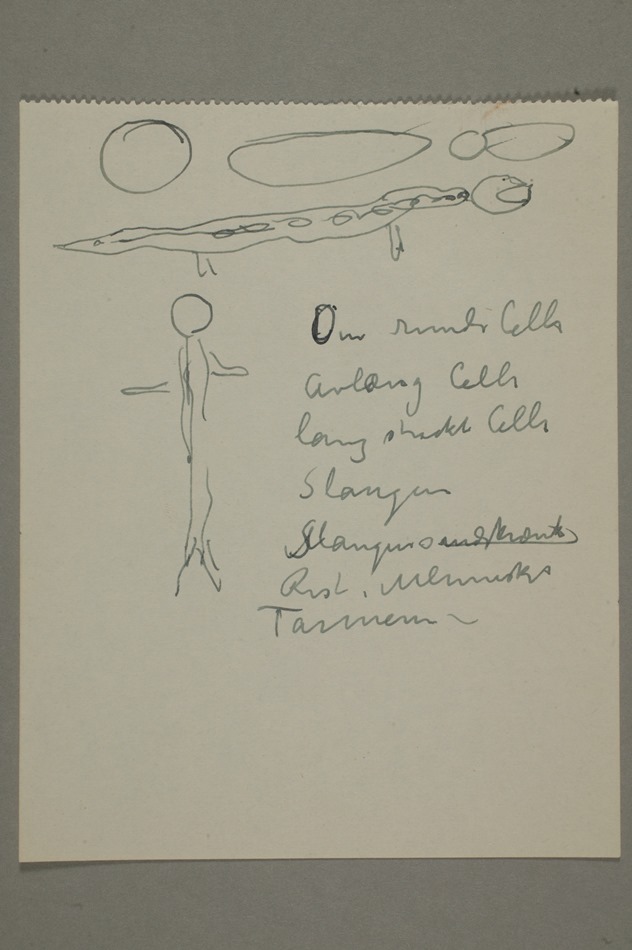 Den runde Celle
avlang Celle
lang strakt Celle
Slangen
Slangens
Rest i Menneske
Tarmen ~